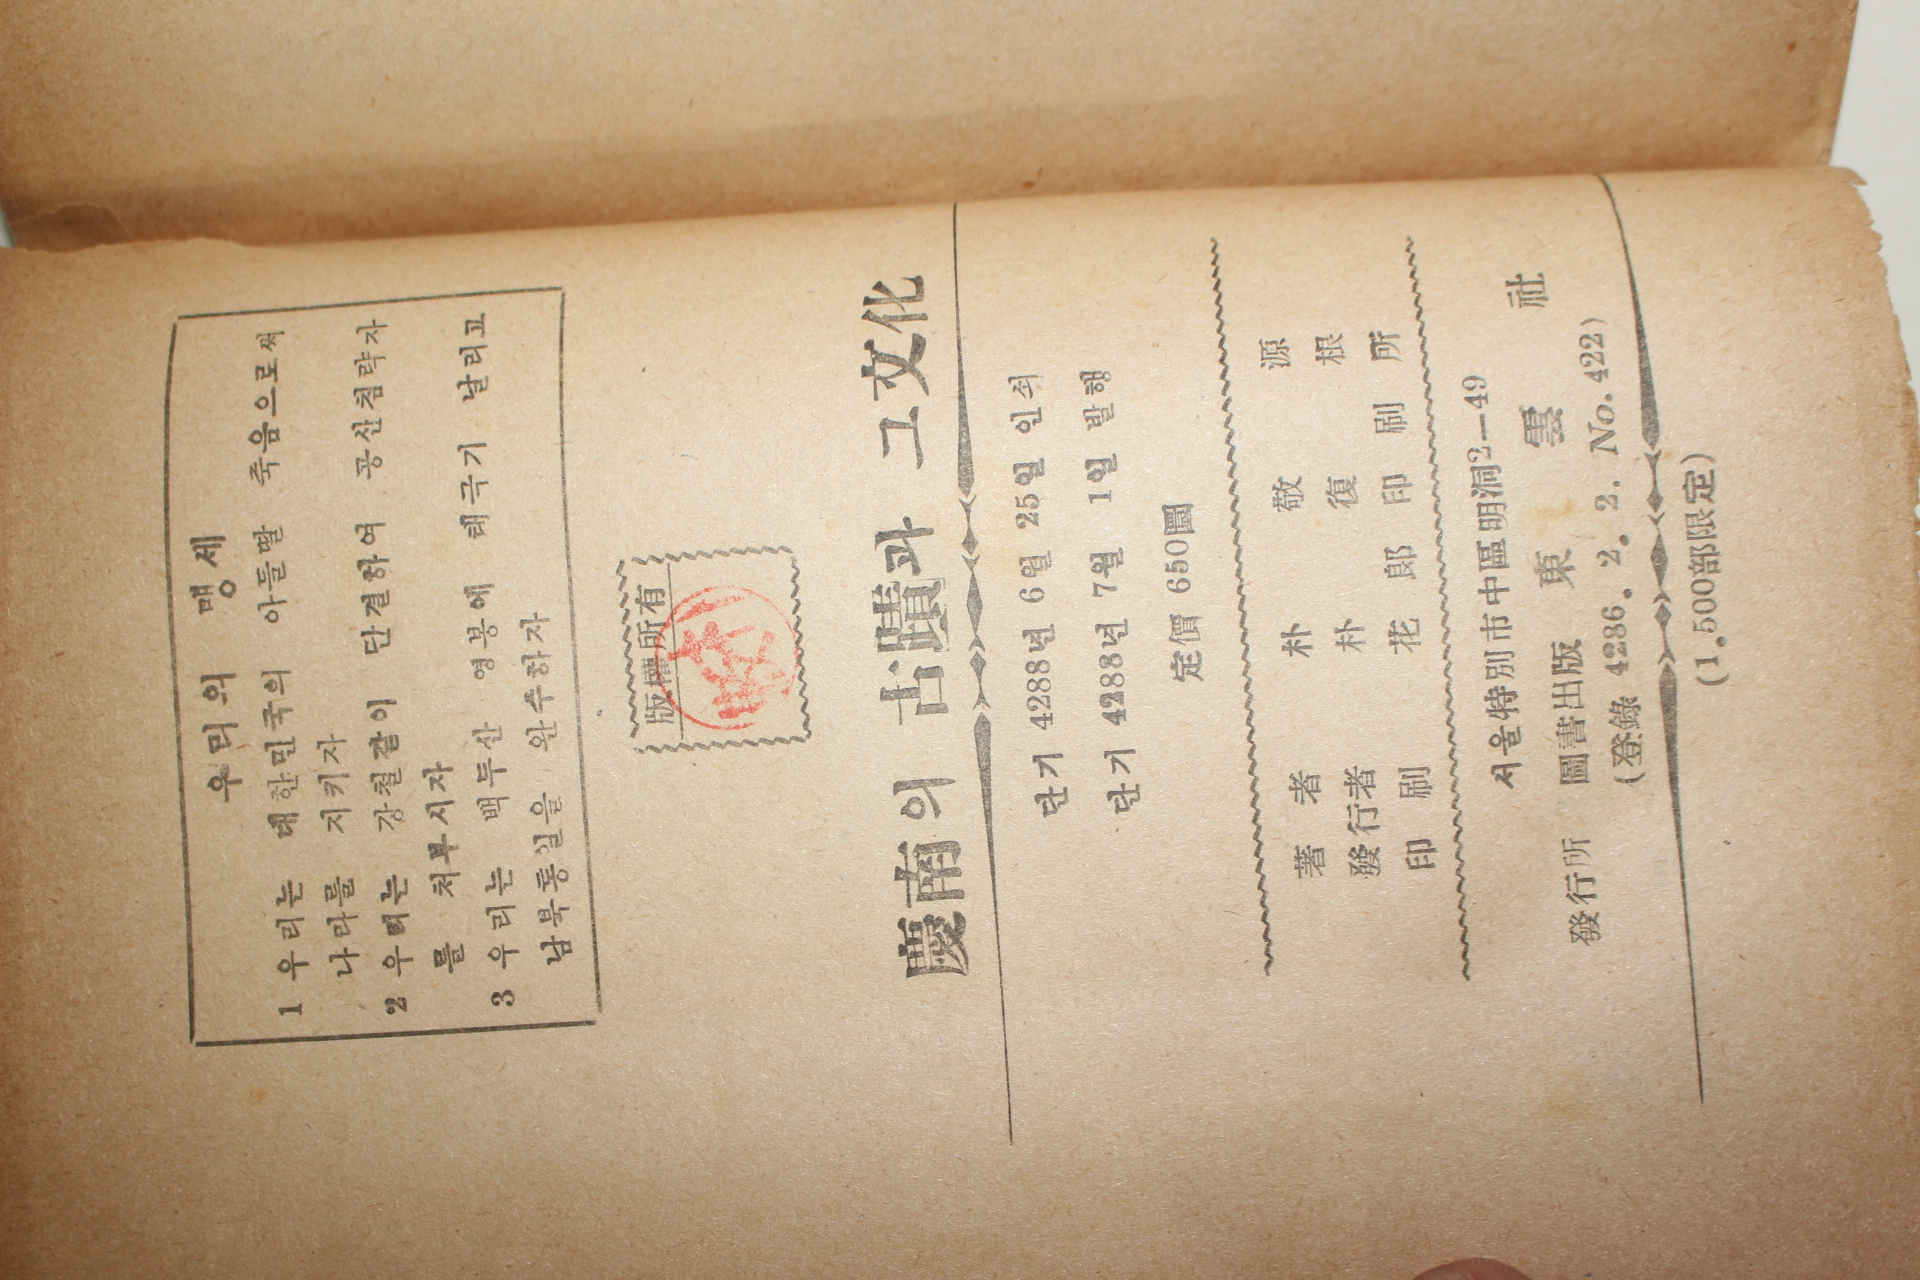 우리의 맹세
1 우리는 대한민국의 아들딸 죽음으로써
나라를 지키자
2 우리는 강철같이 단결하여 공산침략자
를 처부시자
3 우리는 백두산 영봉에 태극기 날리고
남북통일을 완수하자
版權所有
慶南의 古蹟과 그 文化
단기 4288년 6월 25일 인쇄
단기 4288년 7월 1일 발행
定價 650圜
著者 朴敬源
發行者 朴復根
印刷 花郎印刷所
서울特別市中區明洞2—49
發行所 圖書出版 東雲社
(登錄 4286. 2. 2. No. 422)
(1.500部限定)